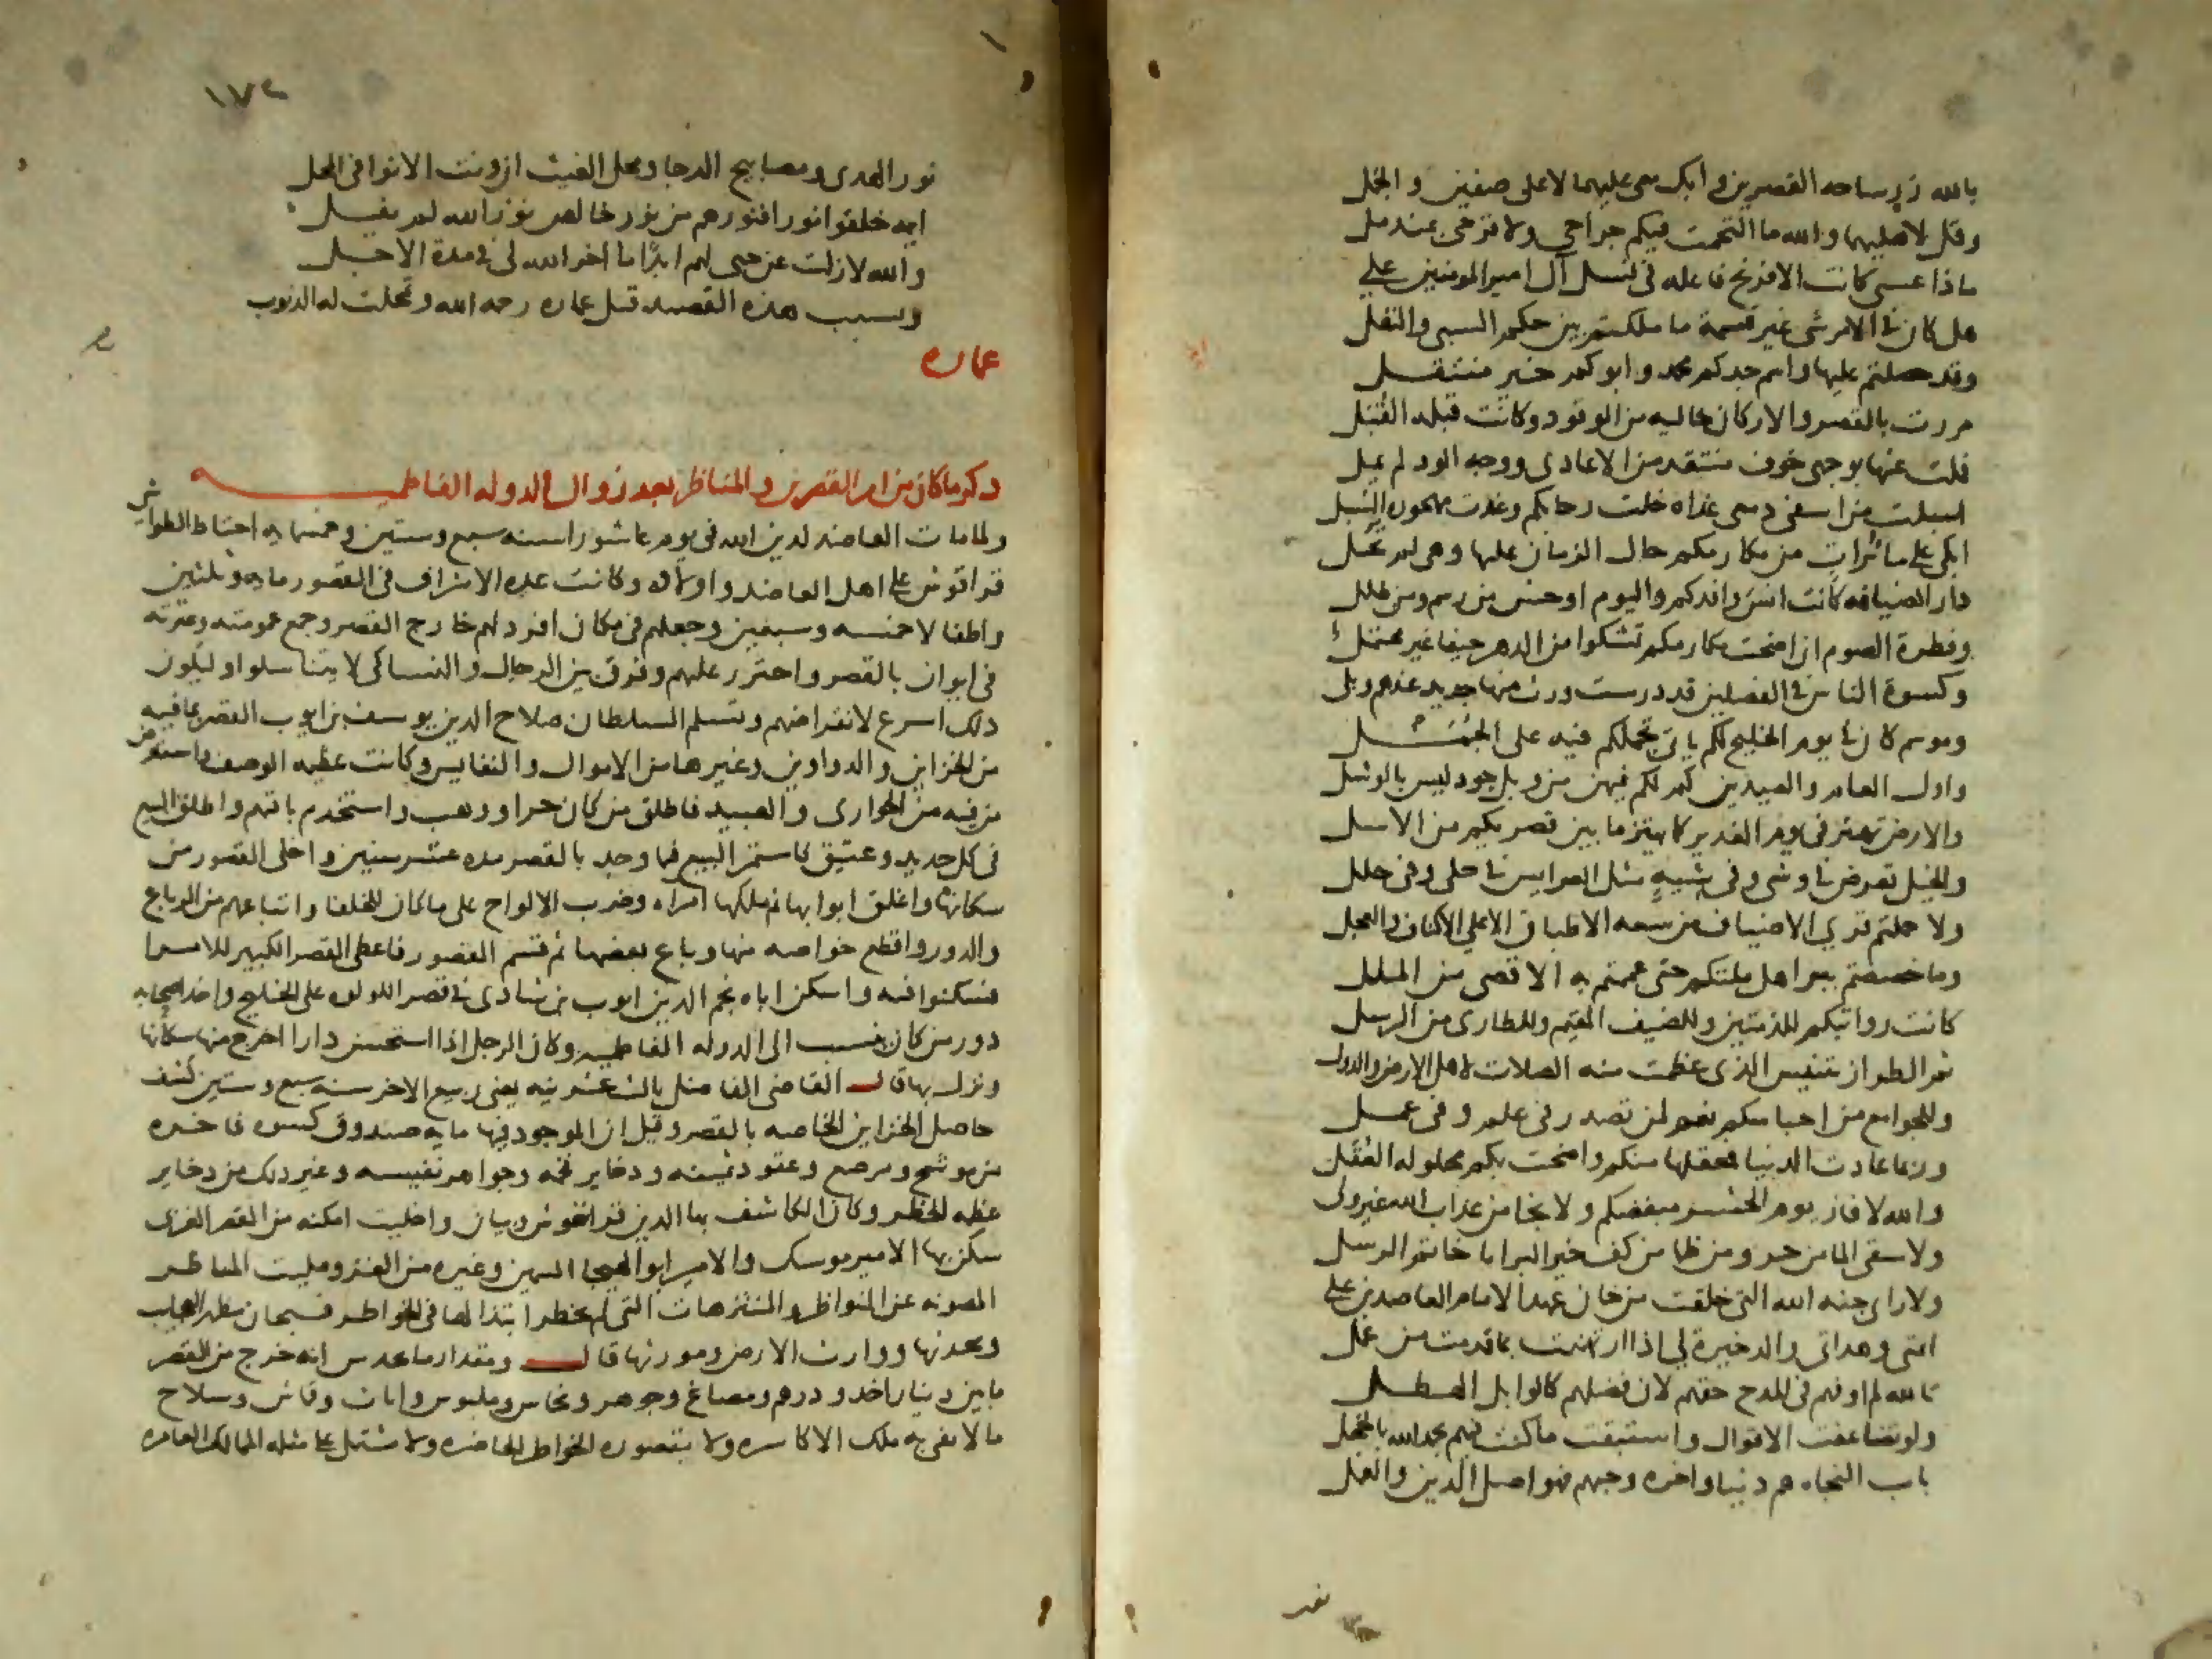 بالله زر ساحه القصرين و ابك معى عليهما لا على صفين و الجمل
وقل لاهليهما والله ما التحمت فيكم جراحى ولا قرحى بمندمل
ماذا عسى كانت الافرنج فاعله فى نسل آل امير المومنين على
هل كان فى الامر شى غير قسمة ما ملكتم بين حكم السبى والنفل
وقد حصلتم عليها واسم جدكم محمد و ابوكم خير منتقل
مررت بالقصر والاركان خاليه من الوفود وكانت قبله القبل
فملت عنها بوجهى خوف منتقد من الاعادى ووجه الود لم يمل
اسبلت من اسفى دمعى غداه خلت رحابكم وغدت مهجورة السبل
ابكى على ماثرات من مكارمكم حال الزمان عليها وهى لم تحل
دار الضيافه كانت انس وافدكم واليوم اوحش من رسم ومن طلل
وفطرة الصوم ان اضحت مكارمكم تشكوا من الدهر حيفا غير محتمل
وكسوة الناس فى الفصلين قد درست ورث منها جديد عندهم وبلى
وموسم كان فى يوم الخليج لكم ياتى تجملكم فيه على الجمل
واول العام والعيدين كم لكم فيهن من وبل جود ليس بالوشل
والارض تهتز فى يوم الغدير كما يهتز ما بين قصريكم من الاسل
والخيل تعرض فى وشى وفى شيه مثل العرايس فى حلى وفى حلل
ولا حملتم قرى الاضياف من سعه الاطباق الا على الاكتاف والعجل
وما خصصتم ببر اهل ملتكم حتى عممتم به الاقصى من الملل
كانت رواتبكم للذمتين وللضيف المقيم وللطارى من الرسل
ثم الطراز بتنيس الذى عظمت منه الصلات لاهل الارض والدول
وللجوامع من احباسكم نعم لمن تصدر فى علم وفى عمل
وربما عادت الدنيا فمعقلها منكم واضحت بكم محلوله العقل
والله لا فاز يوم الحشر مبغضكم ولا نجا من عذاب الله غير ولى
ولا سقى الما من حر ومن ظما من كف خير البرايا خاتم الرسل
ولا راى جنه الله التى خلقت من خان عهد الامام العاضد بن على
ايمتى وهداتى والدخيرة لى اذا ارتهنت بما قدمت من عمل
تالله لم اوفهم فى المدح حقهم لان فضلهم كالوابل الهطل
ولو تضاعفت الاقوال واستبقت ما كنت فيهم بحمد الله بالخجل
باب النجاه هم دنيا واخره وحبهم فهو اصل الدين والعمل
١٧٢
نور الهدى ومصابيح الدجا ومحل الغيث ان ونت الانوا فى المحل
ايمه خلقوا نورا فنورهم من نور خالص نور الله لم يفل
والله لا زلت عن حبى لهم ابدًا ما اخر الله لى فى مدة الاجل
وبسبب هذه القصيده قتل عماره رحمه الله وتمحلت له الذنوب
عماره
دكر ماكان من امر القصرين و المناظر بعد زوال الدوله الفاطميه
ولما مات العاضد لدين الله فى يوم عاشورا سنه سبع وستين وخمسمايه احتاط الطواشى
قراقوش على اهل العاضد واولاده وكانت عده الاشراف فى القصور مايه وثلثين
واطفالا خمسه وسبعين وجعلهم فى مكان افرد لهم خارج القصر وجمع عمومته وعترته
فى ايوان بالقصر واحترز عليهم وفرق بين الرجال والنسا كى لا يتناسلوا وليكون
دلك اسرع لانقراضهم وتسلم السلطان صلاح الدين يوسف بن ايوب القصر بما فيه
من الخزاين والدواوين وغيرها من الاموال والنفايس وكانت عظيمه الوصف واستعرض
من فيه من الجوارى والعبيد فاطلق من كان حرا ووهب واستخدم باقيهم واطلق البيع
فى كل جديد وعتيق فاستمر البيع فيما وجد بالقصر مده عشر سنين واخلى القصور من
سكانها واغلق ابوابها ثم ملكها امراه وضرب الالواح على ما كان للخلفا واتباعهم من الرباع
والدور واقطع خواصه منها وباع بعضها ثم قسم القصور فاعطى القصر الكبير للامرا
فسكنوا فيه واسكن اباه نجم الدين ايوب بن شادى فى قصر اللولوه على الخليج واخذ اصحابه
دور من كان ينسب الى الدوله الفاطميه وكان الرجل اذا استحسن دارا اخرج منها سكانها
ونزل بها قال القاضى الفاضل ثالث عشرينه يعنى ربيع الاخر سنه سبع وستين كشف
حاصل الخزاين الخاصه بالقصر وقيل ان الموجود فيها مايه صندوق كسوه فاخره
من موشح ومرصع وعقود ثمينه ودخاير فخمه وجواهر نفيسه وغير دلك من دخاير
عظيمه الخطر وكان الكاشف بها الدين قراقوش وبيان واخليت امكنه من القصر الغربى
سكن بها الامير موسك والامير ابو الهيجا السمين وغيره من الغز ومليت المناظر
المصونه عن النواظر والمنتزهات التى لم يخطر ابتذالها فى الخواطر فسبحان مظهر العجايب
ومحدثها ووارث الارض ومورثها قال ومقدار ما يحدس انه خرج من القصر
مابين دينار ودرهم ومصاغ وجوهر ونحاس وملبوس واثاث وقماش وسلاح
ما لا يفى به ملك الاكاسره ولا يتصوره الخواطر الحاضره ولا يشتمل على مثله الممالك العامره